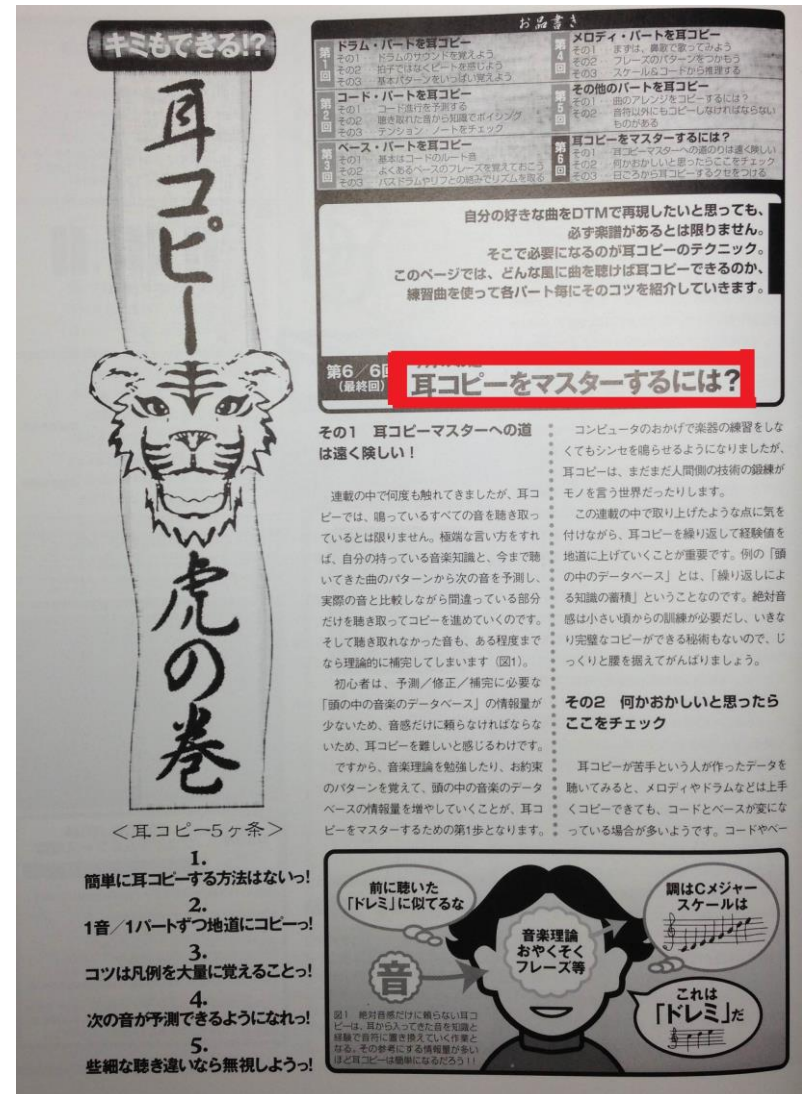 キミもできる!?
耳コピー
虎の巻
お品書き
第1回
ドラム・パートを耳コピー
その1 ドラムのサウンドを覚えよう
その2 拍子ではなくビートを感じよう
その3 基本パターンをいっぱい覚えよう
第2回
コード・パートを耳コピー
その1 コード進行を予測する
その2 聴き取れた音から知識でボイシング
その3 テンション・ノートをチェック
第3回
ベース・パートを耳コピー
その1 基本はコードのルート音
その2 よくあるベースのフレーズを覚えておこう
その3 バスドラムやリフとの絡みでリズムを取る
第4回
メロディ・パートを耳コピー
その1 まずは、鼻歌で歌ってみよう
その2 フレーズのパターンをつかもう
その3 スケール&コードから推理する
第5回
その他のパートを耳コピー
その1 曲のアレンジをコピーするには?
その2 音符以外にもコピーしなければならない
ものがある
第6回
耳コピーをマスターするには?
その1 耳コピーマスターへの道のりは遠く険しい
その2 何かおかしいと思ったらここをチェック
その3 日ごろから耳コピーするクセをつける
自分の好きな曲をDTMで再現したいと思っても、
必ず楽譜があるとは限りません。
そこで必要になるのが耳コピーのテクニック。
このページでは、どんな風に曲を聴けば耳コピーできるのか、
練習曲を使って各パート毎にそのコツを紹介していきます。
第6/6回
(最終回)
耳コピーをマスターするには?
その1 耳コピーマスターへの道
は遠く険しい!
連載の中で何度も触れてきましたが、耳コ
ピーでは、鳴っているすべての音を聴き取っ
ているとは限りません。極端な言い方をすれ
ば、自分の持っている音楽知識と、今まで聴
いてきた曲のパターンから次の音を予測し、
実際の音と比較しながら間違っている部分
だけを聴き取ってコピーを進めていくのです。
そして聴き取れなかった音も、ある程度まで
なら理論的に補完してしまいます(図1)。
初心者は、予測/修正/補完に必要な
「頭の中の音楽のデータベース」の情報量が
少ないため、音感だけに頼らなければならな
いため、耳コピーを難しいと感じるわけです。
ですから、音楽理論を勉強したり、お約束
のパターンを覚えて、頭の中の音楽のデータ
ベースの情報量を増やしていくことが、耳コ
ピーをマスターするための第1歩となります。
コンピュータのおかげで楽器の練習をしな
くてもシンセを鳴らせるようになりましたが、
耳コピーは、まだまだ人間側の技術の鍛練が
モノを言う世界だったりします。
この連載の中で取り上げたような点に気を
付けながら、耳コピーを繰り返して経験値を
地道に上げていくことが重要です。例の「頭
の中のデータベース」とは、「繰り返しによ
る知識の蓄積」ということなのです。絶対音
感は小さい頃からの訓練が必要だし、いきな
り完璧なコピーができる秘術もないので、じ
っくりと腰を据えてがんばりましょう。
その2 何かおかしいと思ったら
ここをチェック
耳コピーが苦手という人が作ったデータを
聴いてみると、メロディやドラムなどは上手
くコピーできても、コードとベースが変にな
っている場合が多いようです。コードやベー
<耳コピー5ヶ条>
1.
簡単に耳コピーする方法はないっ!
2.
1音/1パートずつ地道にコピーっ!
3.
コツは凡例を大量に覚えることっ!
4.
次の音が予測できるようになれっ!
5.
些細な聴き違いなら無視しようっ!
前に聴いた
「ドレミ」に似てるな
音
音楽理論
おやくそく
フレーズ等
調はCメジャー
スケールは
これは
「ドレミ」だ
図1 絶対音感だけに頼らない耳コ
ピーは、耳から入ってきた音を知識と
経験で音符に置き換えていく作業と
なる。その参考にする情報量が多い
ほど耳コピーは簡単になるだろう!!